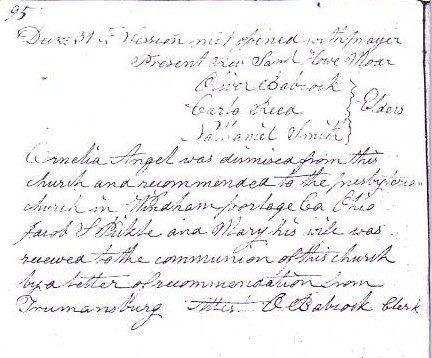 95
Dec 31st Session met opened with prayer
Present Rev Saml Howe Modr
Oliver Babcock
Carlo Reed } Elders
Nathaniel Smith
Cornelia Angel was dismised from this
church and recommended to the presbyterian
church in Windham portage Co. Ohio
Jacob S Pickle and Mary his wife was
receved to the communion of this church
by a letter of recommendation from
Trumansburg Attest O Babcock Clerk